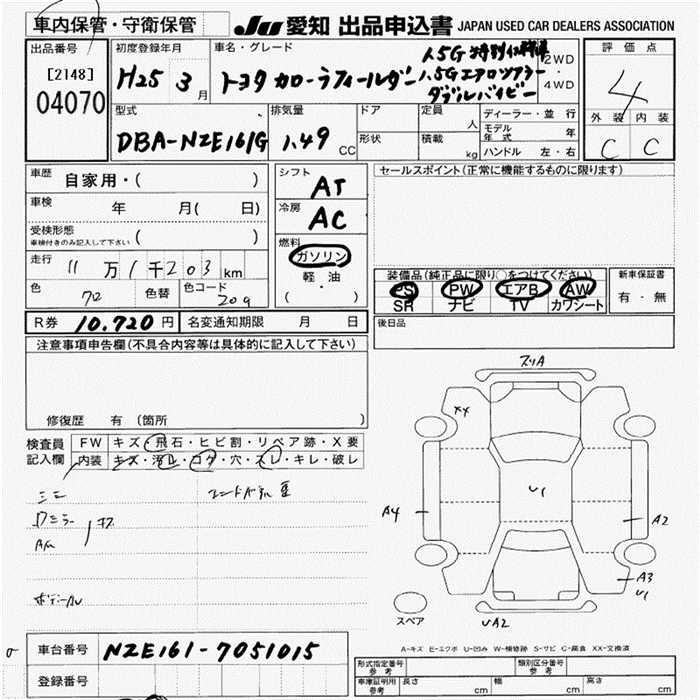 車内保管・守衛保管
JU 愛知 出品申込書 JAPAN USED CAR DEALERS ASSOCIATION
出品番号
[2148]
04070
初度登録年月
H25 3月
車名・グレード
1.5G 特別仕様車
トヨタ カローラフィールダー 1.5Gエアロツアラー
ダブルバイビー
2WD
・
4WD
評価点
4
外装 内装
C C
型式
DBA-NZE161G
排気量
1.49 CC
ドア
形状
定員
人
積載
kg
ディーラー・並行
モデル年式 年
ハンドル 左・右
車歴 自家用・( )
車検 年 月( 日)
受検形態
車検付きのみ記入して下さい ( )
走行 11万1千203km
色 70 色替 色コード 209
シフト
AT
冷房
AC
燃料
ガソリン
軽・油
( ・ )
セールスポイント(正常に機能するものに限ります)
装備品(純正品に限り○をつけてください)
PS PW エアB AW
SR ナビ TV カワシート
新車保証書
有・無
R券 10,720円
名変通知期限 月 日
後日品
注意事項申告欄(不具合内容等は具体的に記入して下さい)
修復歴 有 (箇所 )
検査員
記入欄
FW キズ・飛石・ヒビ割・リペア跡・X要
内装 キズ・汚レ・コゲ・穴・スレ・キレ・破レ
スリA
XX
U1
A4
A2
A3
U1
UA2
スペア
A-キズ E-エクボ U-凹み W-補修跡 S-サビ C-腐食 XX-交換済
車台番号 NZE161-7051015
登録番号
形式指定番号
参考
類別区分番号
参考
車庫証明用
参考
長さ cm 幅 cm 高さ cm